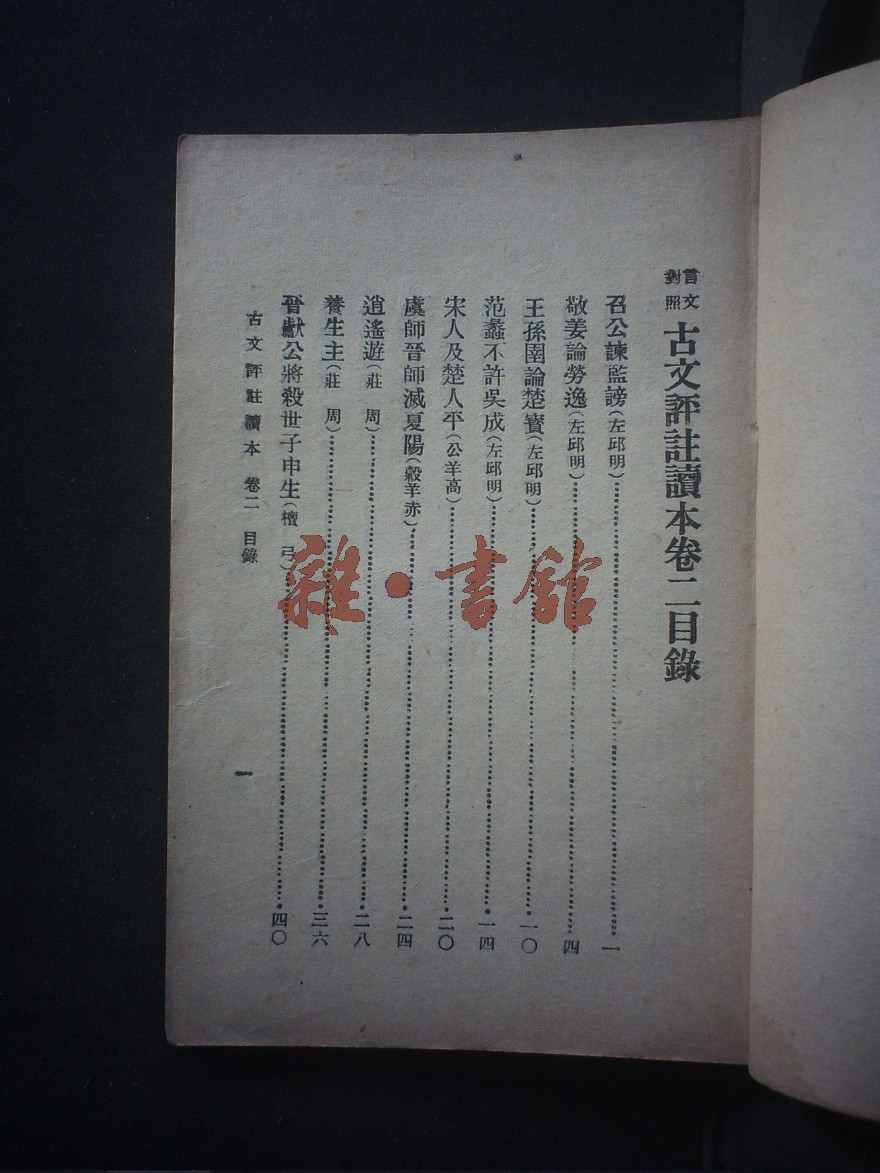 言文對照 古文評註讀本卷二目錄
召公諫監謗(左邱明)⋯⋯一
敬姜論勞逸(左邱明)⋯⋯四
王孫圉論楚寶(左邱明)⋯⋯一〇
范蠡不許吳成(左邱明)⋯⋯一四
宋人及楚人平(公羊高)⋯⋯二〇
虞師晉師滅夏陽(穀羊赤)⋯⋯二四
逍遙遊(莊 周)⋯⋯二八
養生主(莊 周)⋯⋯三六
晉獻公將殺世子申生(檀 弓)⋯⋯四〇
古文評註讀本 卷二 目錄
一
雜·書館